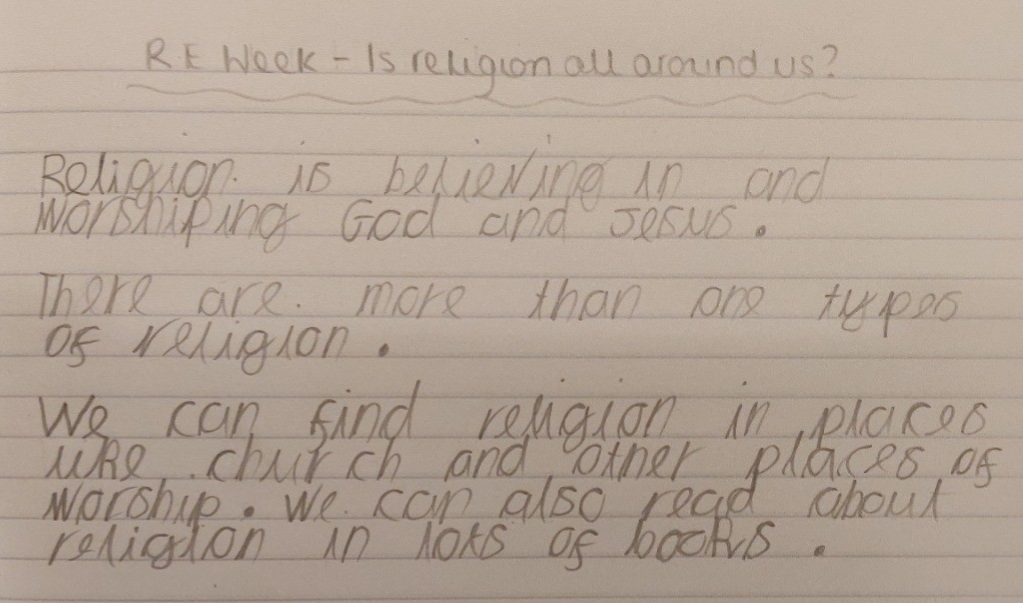 R.E Week - Is religion all around us?
Religion is believing in and
worshiping God and Jesus.
There are more than one types
of religion.
We can find religion in places
like church and other places of
worship. We can also read about
religion in lots of books.